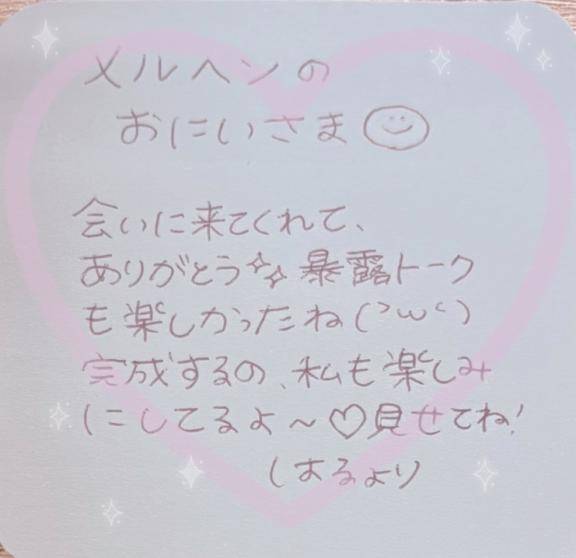 メルヘンの
おにいさま
会いに来てくれて、
ありがとう✧✧暴露トーク
も楽しかったね(˃ω˂)
完成するの、私も楽しみ
にしてるよ～♡見せてね!
はるより